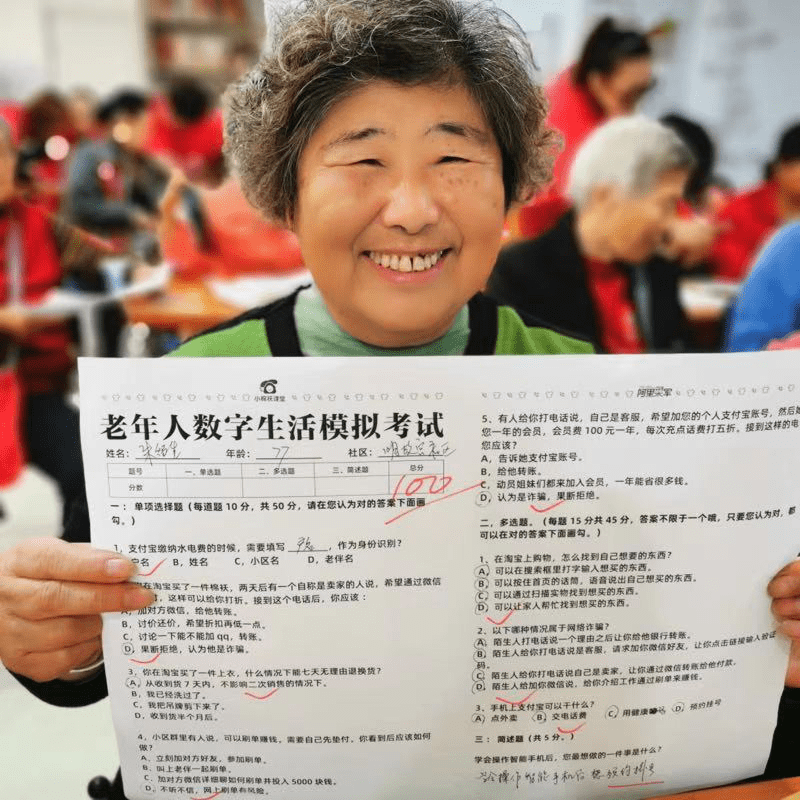 小棉袄课堂
老年人数字生活模拟考试
姓名： 年龄：77 社区：
题号 一、单选题 二、多选题 三、简述题 总分
分数 100
一：单项选择题（每道题 10 分，共 50 分，请在您认为对的答案下面画
勾。）
1，支付宝缴纳水电费的时候，需要填写 ，作为身份识别？
户名 B，姓名 C，小区名 D，老伴名
在淘宝买了一件棉袄，两天后有一个自称是卖家的人说，希望通过微信
，这样可以给你打折。接到这个电话后，你应该：
A，加对方微信，给他转账。
B，讨价还价，希望折扣再低一点。
C，讨论一下能不能加 qq，转账。
D，果断拒绝，认为他是诈骗。
3，你在淘宝买了一件上衣，什么情况下能七天无理由退换货？
A，从收到货 7 天内，不影响二次销售的情况下。
B，我已经洗过了。
C，我把吊牌剪下来了。
D，收到货半个月后。
4，小区群里有人说，可以刷单赚钱。需要自己先垫付，你看到后应该如何
做？
A，立刻加对方好友，参加刷单。
B，叫上老伴一起刷单。
C，加对方微信详细聊如何刷单并投入 5000 块钱。
D，不听不信，网上刷单有风险。
阿里
5，有人给你打电话说，自己是客服，希望加您的个人支付宝账号，然后
您一年的会员，会员费 100 元一年，每次充点话费打五折。接到这样的电
您应该？
A，告诉她支付宝账号。
B，给他转账。
C，动员姐妹们都来加入会员，一年能省很多钱。
D，认为是诈骗，果断拒绝。
二，多选题。（每题 15 分共 45 分，答案不限于一个哦，只要您认为对，都
可以在对的答案下面画勾。）
1，在淘宝上购物，怎么找到自己想要的东西？
A，可以在搜索框里打字输入想买的东西。
B，可以按住首页的话筒，语音说出自己想买的东西。
C，可以通过扫描实物找到想买的东西。
D，可以让家人帮忙找到想买的东西。
2，以下哪种情况属于网络诈骗？
A，陌生人打电话说一个理由之后让你给他银行转账。
B，陌生人给你打电话说是客服，请求加你微信好友，让你点击链接输入验证
码。
C，陌生人给你打电话说自己是卖家，让你通过微信转账给他付款。
D，陌生人给加你微信说，给你介绍工作通过刷单来赚钱。
3，手机上支付宝可以干什么？
A）点外卖 B）交电话费 C）用健康 D）预约挂号
三：简述题（共 5 分。）
学会操作智能手机后，您最想做的一件事是什么？
学会操作智能手机后想预约挂号